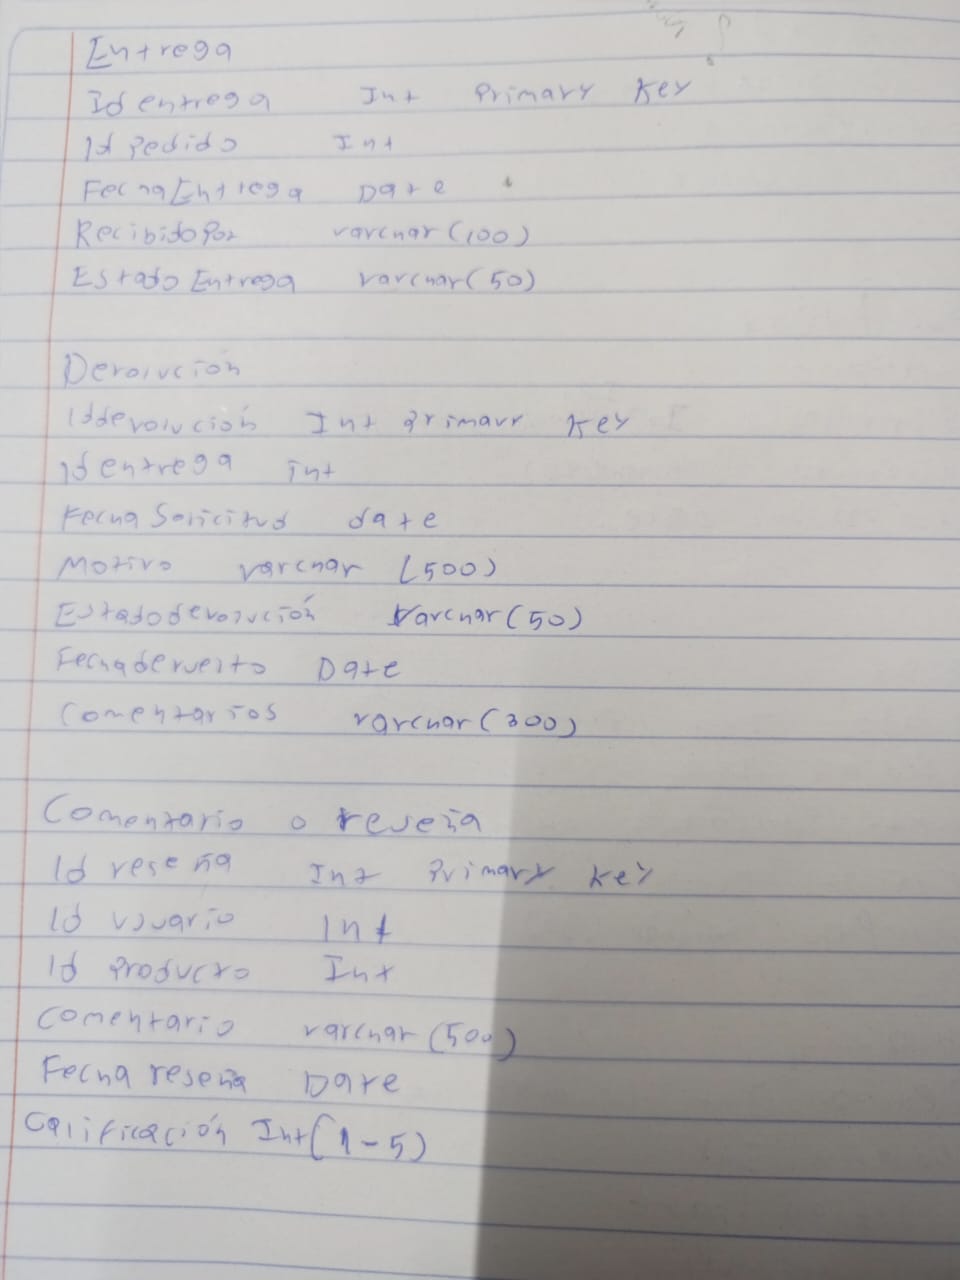 Entrega
Id entrega Int Primary Key
Id Pedido Int
Fecha Entrega Date
Recibido Por varchar (100)
Estado Entrega varchar (50)
Devolución
Id devolución Int Primary Key
Id entrega int
Fecha Solicitud date
Motivo varchar (500)
Estado devolución Varchar (50)
Fecha devuelto Date
Comentarios varchar (300)
Comentario o reseña
Id reseña Int Primary Key
Id usuario Int
Id Producto Int
Comentario varchar (500)
Fecha reseña Date
Calificación Int (1-5)